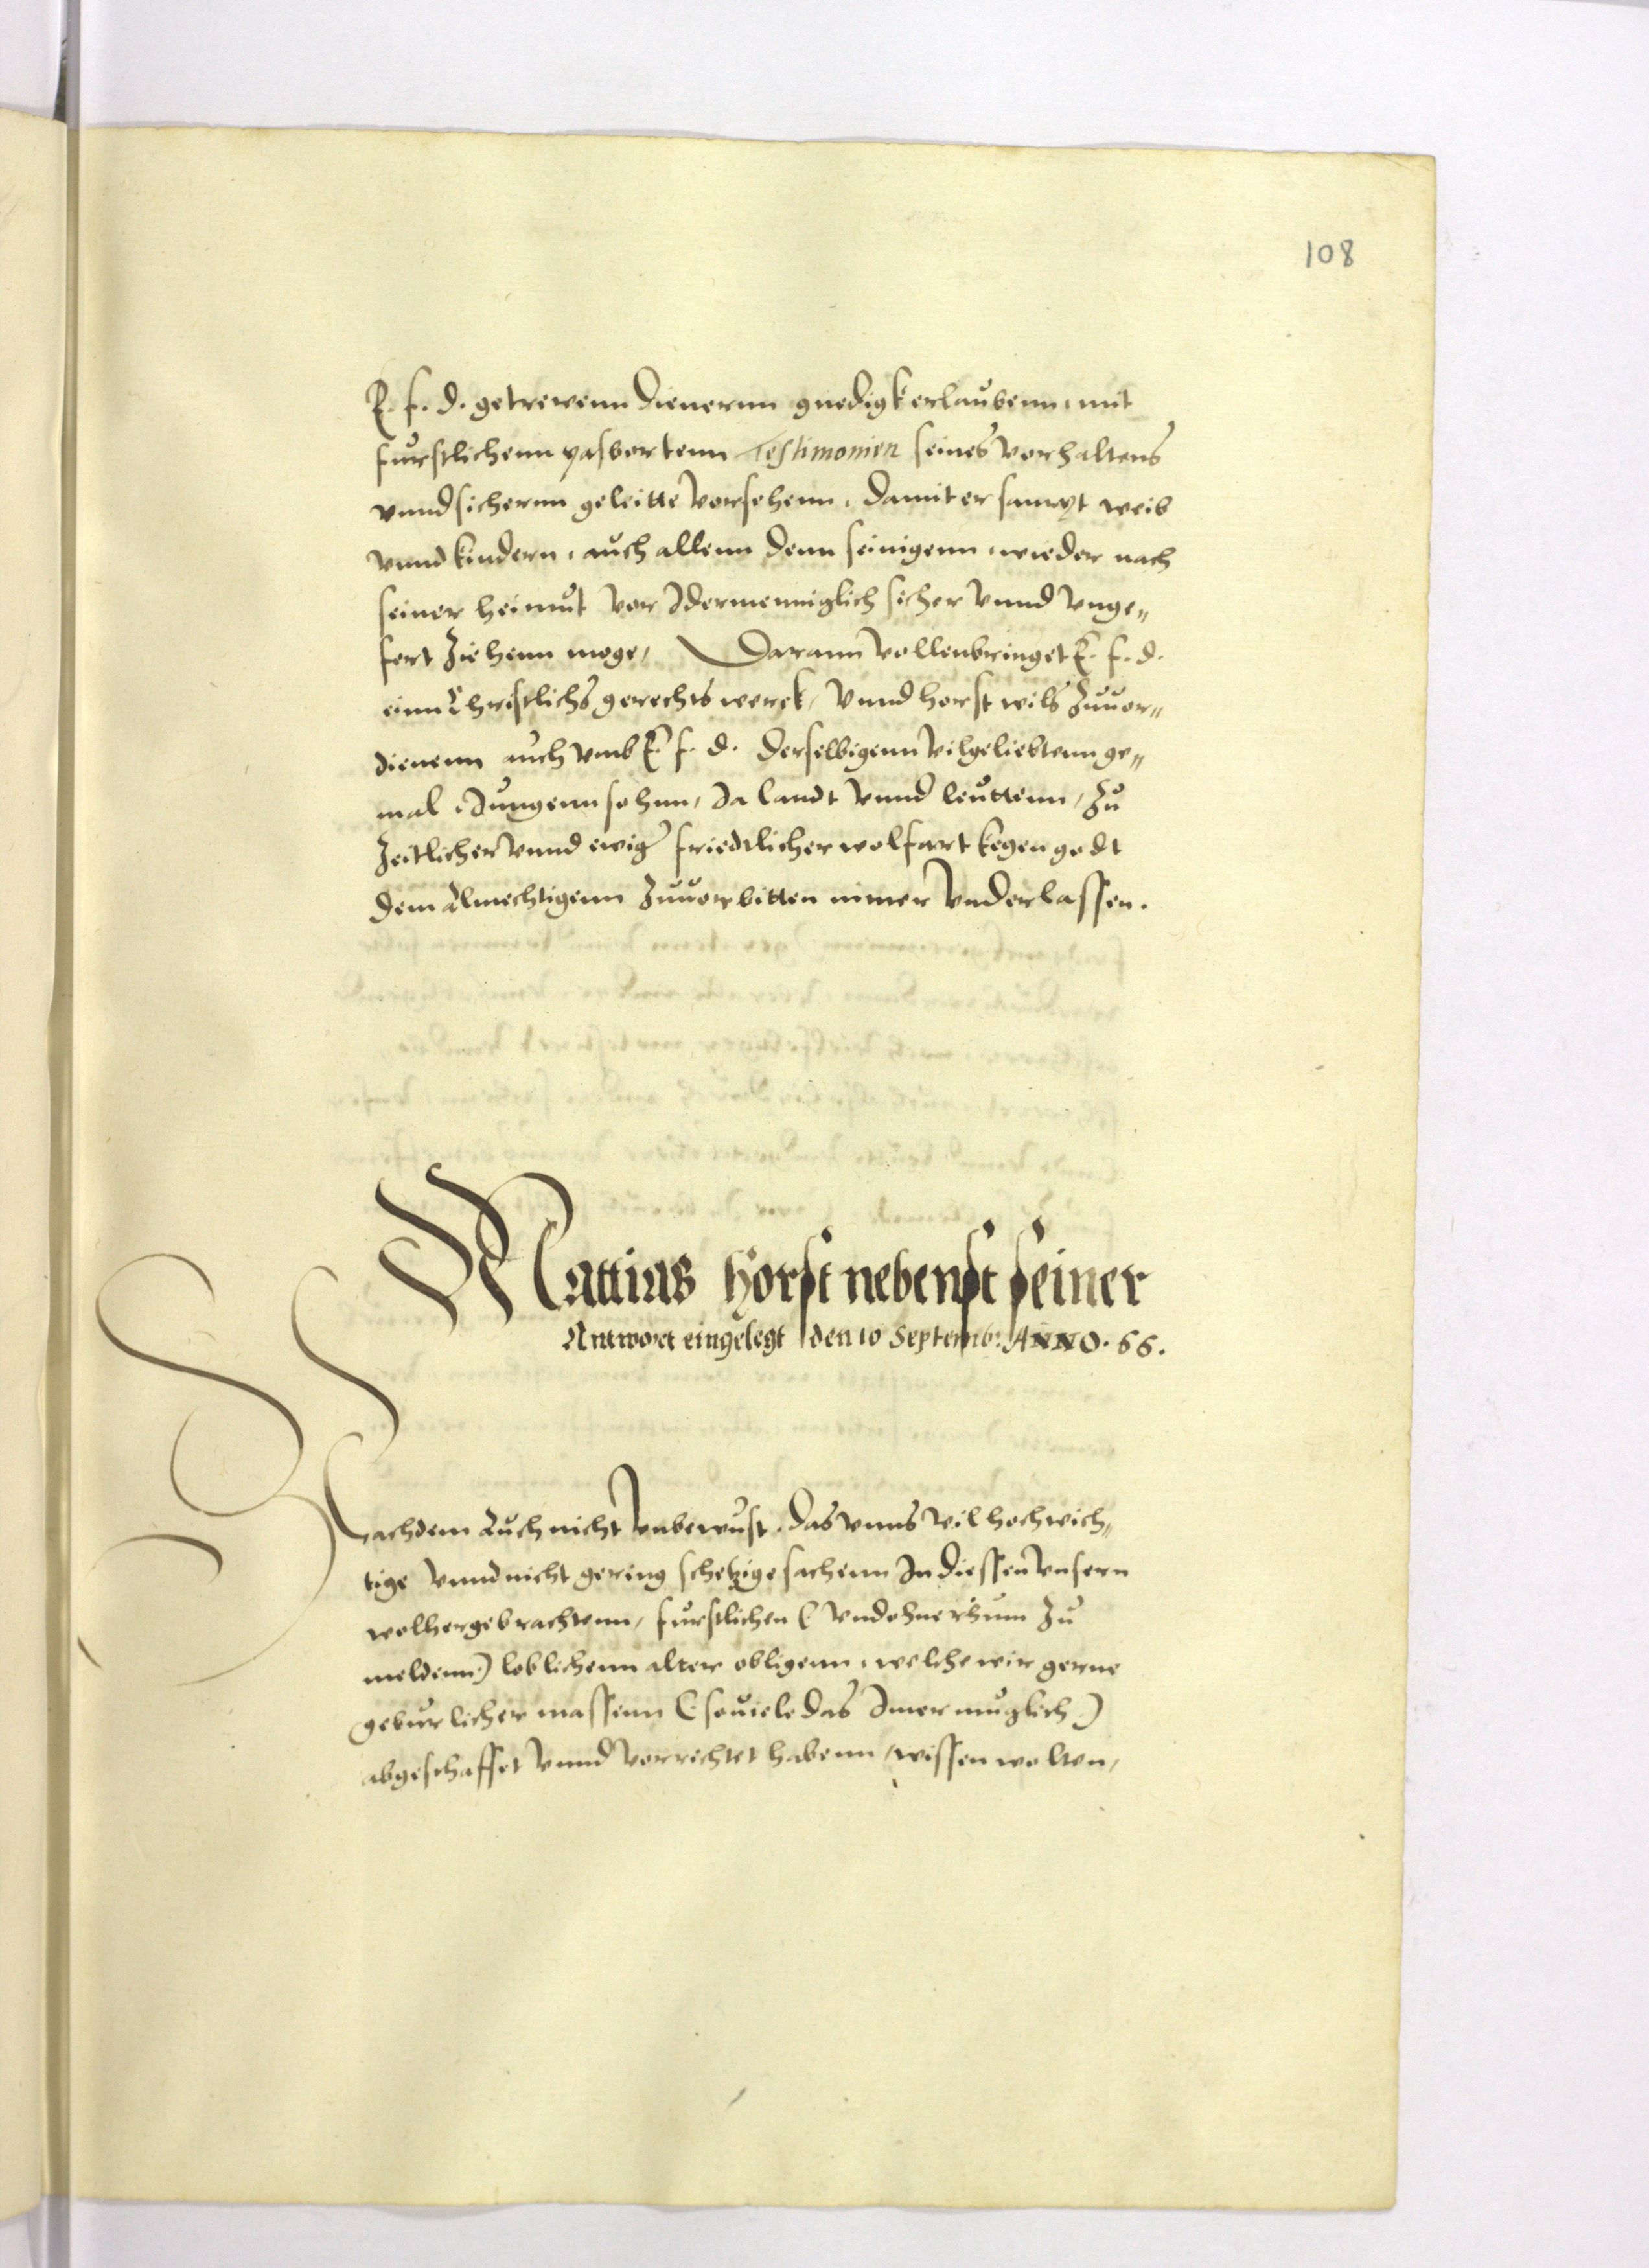 108
E. f. d. getrewenn Dienernn gnedigk erlaubenn, mit
furstlichenn pasbortenn Testimonien seines vorhaltens
vnnd sichernn geleitte vorsehenn, damit er sampt weib
vnnd kindern, auch allenn denn seinigenn, wieder nach
seiner heimut vor Idermenniglich sicher vnnd vnge„
fert Ziehenn moge, Darann vollenbringet E. f. d.
einn Christlichs gerechts werck, vnnd horst wils Zuuor„
dienenn auch vmb E. f. d. derselbigenn vilgeliebtenn ge„
mal, Jungenn sohnn, Ja landt vnnd leuttenn, Zu
Zeitlicher vnnd ewiger friedtlicher wolfart kegen godt
dem Almechtigenn Zuuorbitten nimer vnderlassen.
Mattias Horst nebenst seiner
Antwort eingelegt den 10 Septemb: ANNO. 66.
Nachdem Auch nicht vnbewust, das vnns vil hochwich„
tige vnnd nicht gering schetzige sachenn In diessen vnsern
wolhergebrachtenn, furstlichen (vnd ohne rhum Zu
meldenn) loblichenn alter obligenn, welche wir gerne
geburlicher massenn (souiele das Imer muglich)
abgeschaffet vnnd vorrichtet habenn, wissen wolten,